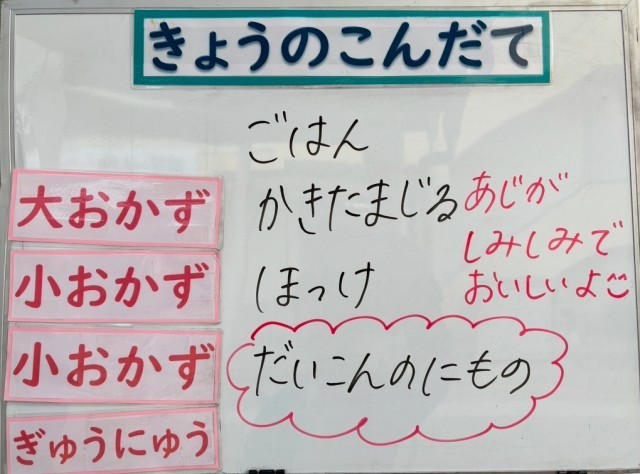 きょうのこんだて
ごはん
大おかず
かきたまじる
小おかず
ほっけ
小おかず
だいこんのにもの
ぎゅうにゅう
あじが
しみしみで
おいしいよ